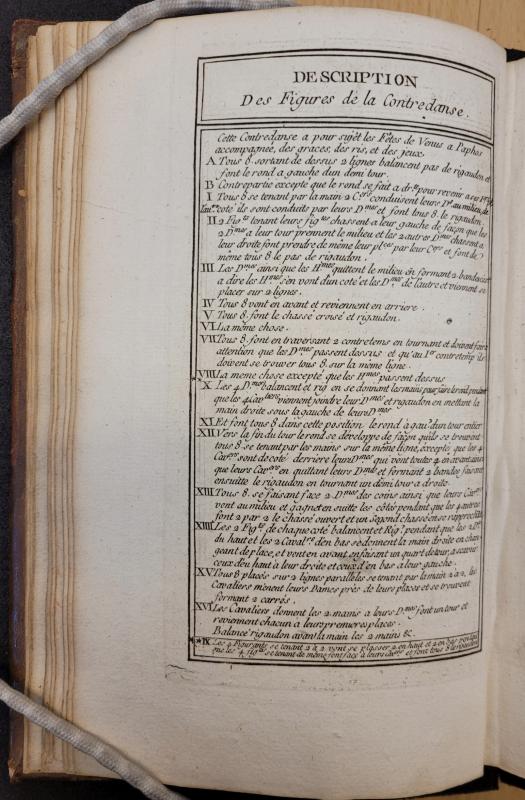 DESCRIPTION
Des Figures de la Contredanse.
Cette Contredanse a pour sujêt les Fêtes de Venus a Paphos
accompagnée, des graces, des ris, et des jeux.
A Tous 8. sortant de dessus 2 lignes balancent pas de rigaudon et
font le rond a gauche d'un demi tour.
B Contrepartie excepté que le rond se fait a dr.te pour revenir a sa
I Tous 8 se tenant par la main 2 C.ers conduisent leurs D.es au milieu, de
l'autre coté ils sont conduits par leurs D.mes et font tous 8. le rigaudon.
II 2 Fig.ts tenant leurs fig.tes chassent a leur gauche de façon que les
2 D.mes a leur tour prennent le milieu et les 2 autres D.mes chassent a
leur droite font prendre de même leur pl.ces par leur C.ers et font de
même tous 8 le pas de rigaudon.
III Les D.mes ainsi que les H.mes quittent le milieu en formant 2 bandes
a dire les H.mes s'en vont d'un coté et les D.mes de l'autre et viennent se
placer sur 2 lignes.
IV Tous 8 vont en avant et reviennent en arriere.
V Tous 8. font le chassé croisé et rigaudon.
VI La même chose.
VII Tous 8. font en traversant 2 contretems en tournant et doivent faire
attention que les D.mes passent dessus et qu'au 1.er contretemp ils
doivent se trouver tous 8. sur la même ligne.
VIII La meme chose excepté que les H.mes passent dessus
* X Les 4 D.mes balancent et rig en se donnant les mains pour faire le rond pendant
que les 4 Cav.liers viennent joindre leur D.mes et rigaudon en mettant la
main droite sous la gauche de leurs D.mes
XI Et font tous 8 dans cette position le rond à gau.e d'un tour entier
XII Vers la fin du tour le rond se développe de façon qu'ils se trouvent
tous 8 se tenant par les mains sur la même ligne, excepté que les 4
Cav.ers sont de coté derriere leurs D.mes qui vont toutes 4 en avant ainsi
que leurs Cav.ers en quittant leurs D.mes et formant 2 bandes faisant
ensuitte le rigaudon en tournant un demi tour a droite.
XIII Tous 8. se faisant face 2 D.mes des coins ainsi que leurs Cav.ers
vont au milieu et gagnet en suitte les côtés pendant que les 4 autres
font 2 par 2 le chassé ouvert et un Segond chassé en se rapprochant
XIIII Les 2 Fig.ts de chaque coté balancent et Rig.n pendant que les 2 D.mes
du haut et les 2 Caval.rs d'en bas se donnent la main droite en chan-
geant de place, et vent en avant en faisant un quart de tour, a scavoir
ceux d'eu haut à leur droite et ceux d'en bas a leur gauche.
XV Tous 8 placés sur 2 lignes paralleles se tenant par la main 2 a 2, les
Cavaliers mènent leurs Dames près de leurs places et se trouvent
formant 2 carrés.
XVI Les Cavaliers donnent les 2. mains a leurs D.mes font un tour et
reviennent chacun a leurs premieres places.
Balancé rigaudon avant la main les 2 mains &.
* IX Les 4 Figurants se tenant 2 à 2 vont se placer 2 en haut et 2 en bas pendant
que les 4 fig.tes se tenant de même font face a leurs cav.ers et font tous 8 le rigaudon